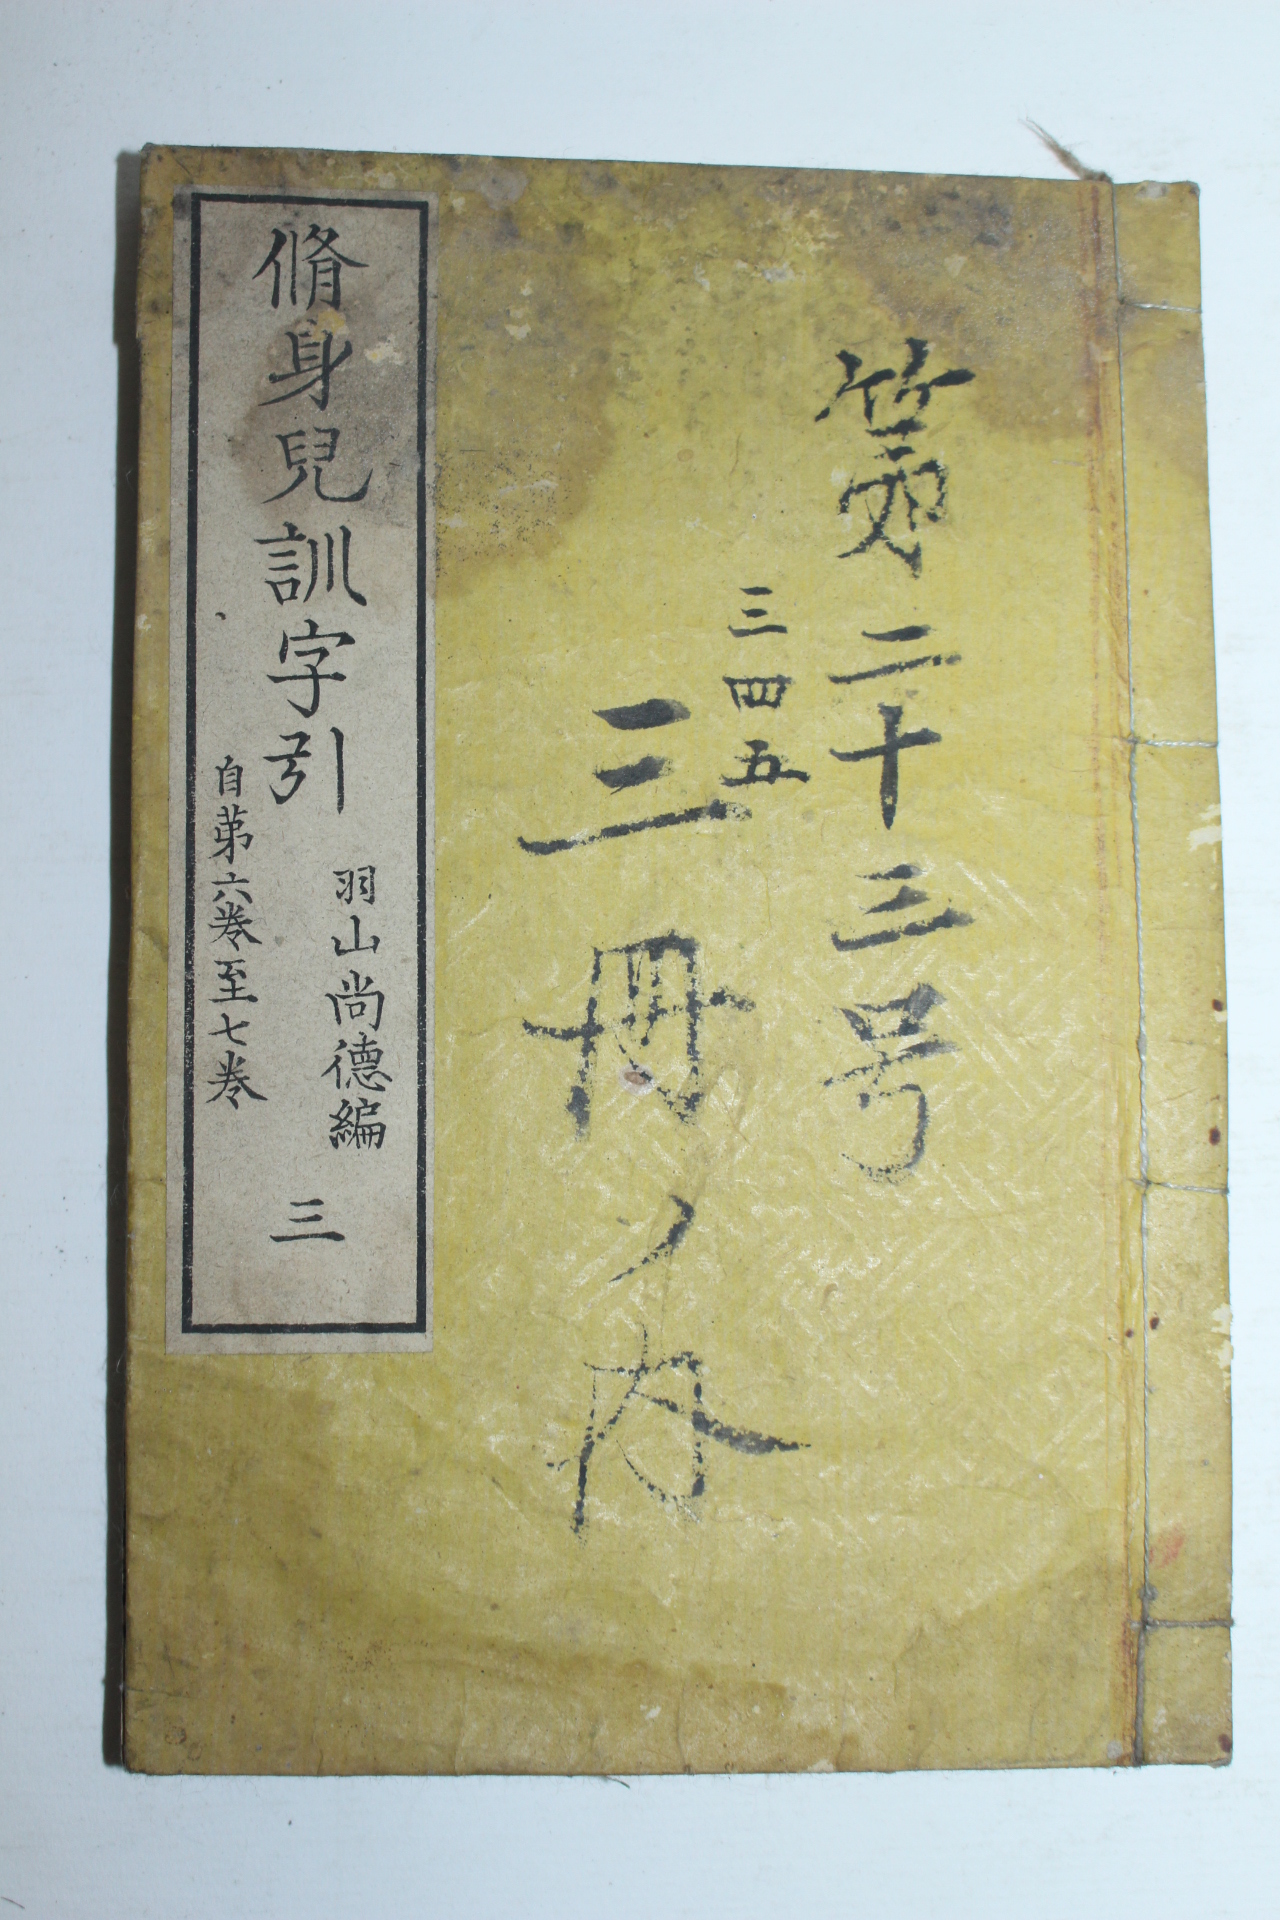 第二十三号
三四五
三冊ノ内
脩身兒訓字引
羽山尚德編
自第六卷至七卷
三